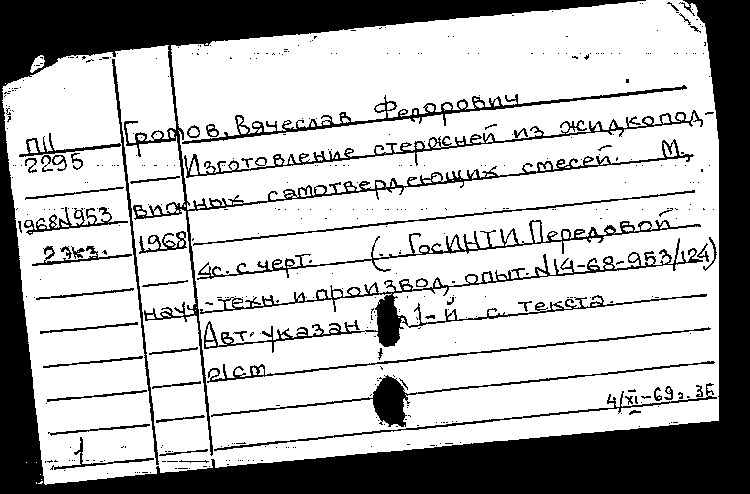 П11
2295
1968N953
2 экз.
Громов, Вячеслав Федорович
Изготовление стержней из жидкопод-
вижных самотвердеющих смесей. М.,
1968
4с. с черт. (...ГОСИНТИ. Передовой
науч.-техн. и производ. опыт. N14-68-953/124)
Авт. указан на 1-й с. текста.
21 cm
4/XI-69г. ЗБ
1